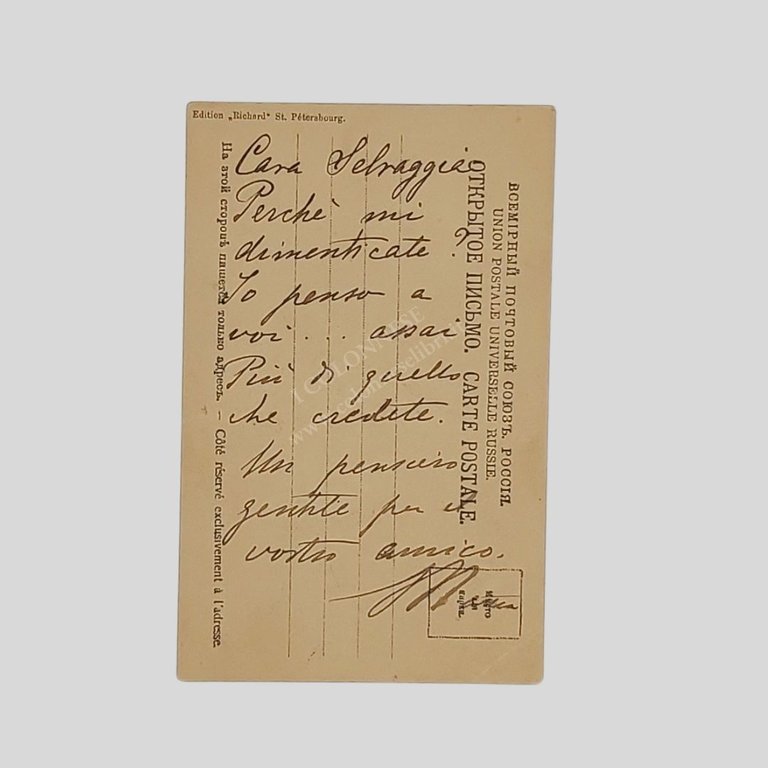 Edition „Richard" St. Pétersbourg.
Cara Selvaggia
Perchè mi
dimenticate?
Io penso a
voi... assai
Più di quello
che credete.
Un pensiero
gentile per il
vostro amico.
ВСЕМІРНЫЙ ПОЧТОВЫЙ СОЮЗЪ. РОССІЯ.
UNION POSTALE UNIVERSELLE RUSSIE.
ОТКРЫТОЕ ПИСЬМО. CARTE POSTALE.
Мѣсто
для
марки.
На этой сторонѣ пишется только адресъ. — Côté réservé exclusivement à l'adresse.